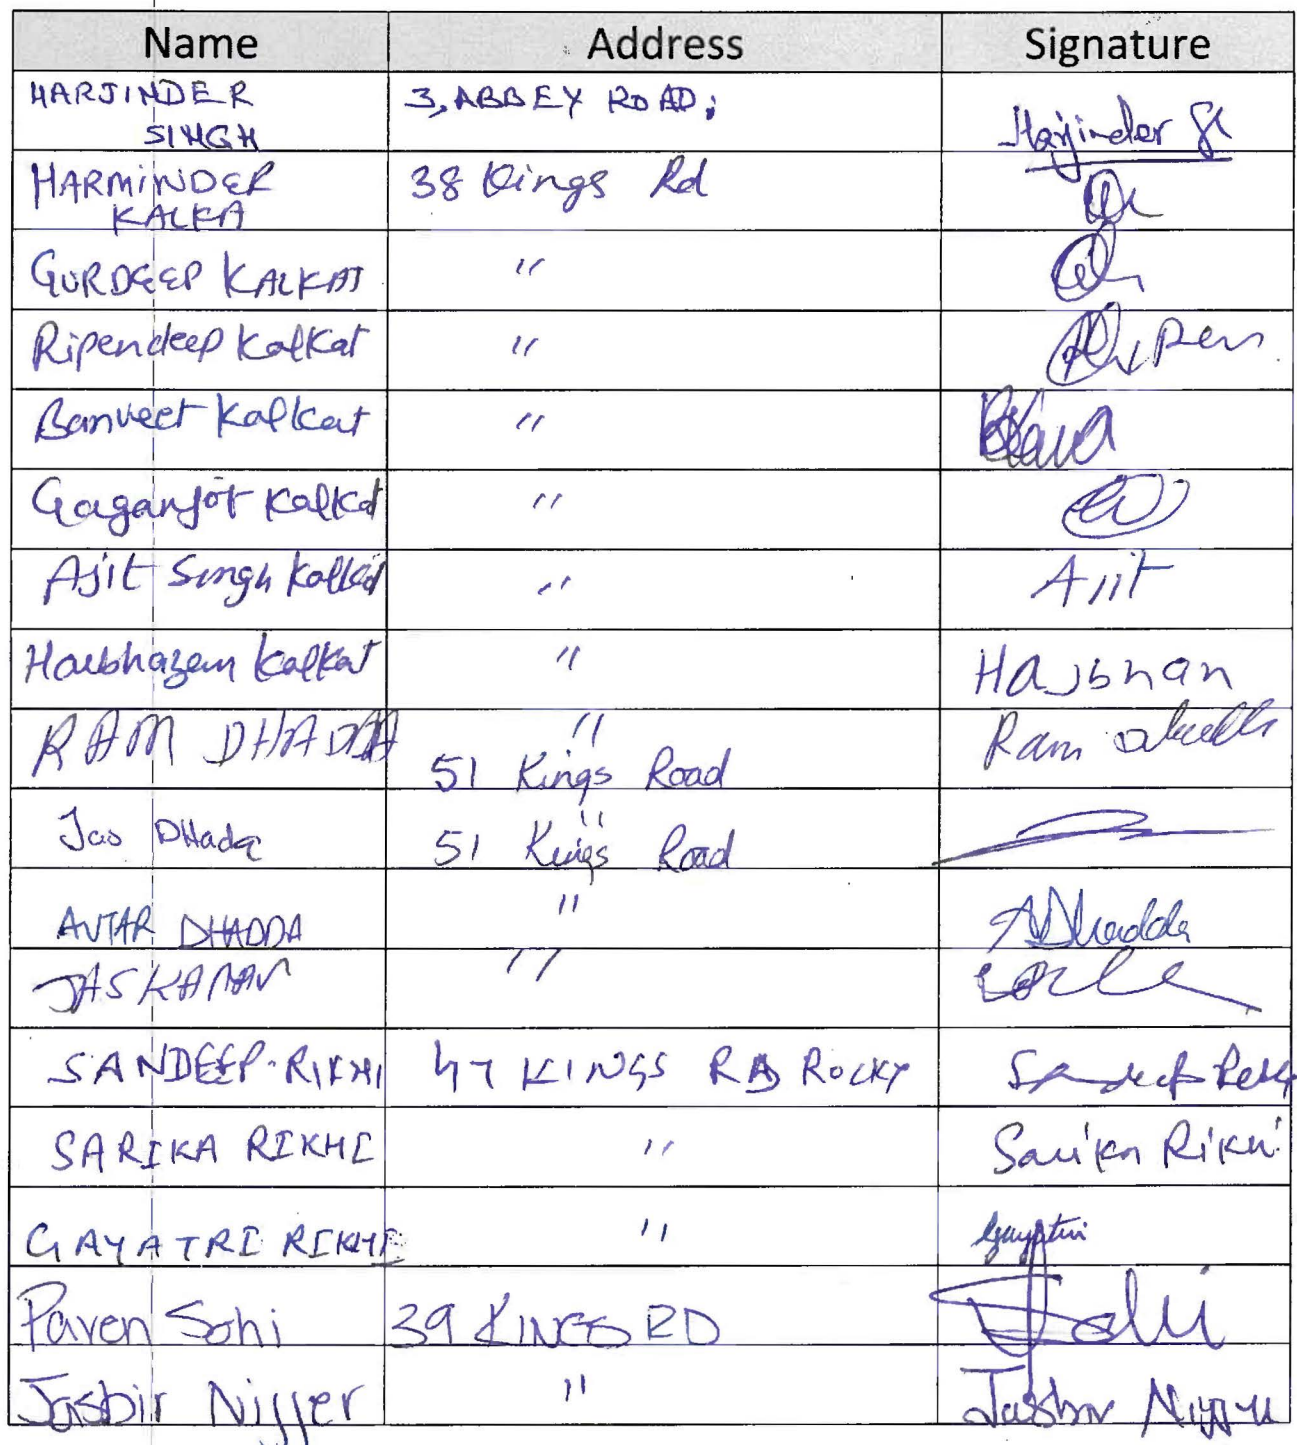 Name Address Signature
HARJINDER 3, ABBEY ROAD;
SINGH Harjinder
HARMINDER 38 Kings Rd
KALKA
GURDEEP KALKAT "
Ripendeep Kalkat "
Banveet Kalkat "
Gaganjot Kalkat "
Ajit Singh Kalkat " Ajit
Kalkat " Harbhan
RAM DHADDA " Ram
51 Kings Road
Jas DHada "
51 Kings Road
AVTAR DHADDA " ADhadda
JASKARAN "
SANDEEP RIKHI 47 KINGS RD ROCKY Sandeep
SARIKA RIKHI " Sarika Rikhi
GAYATRI RIKHI " Gayatri
Paven Sohi 39 KINGS RD Sohi
Jasbir Nijjer " Jasbir